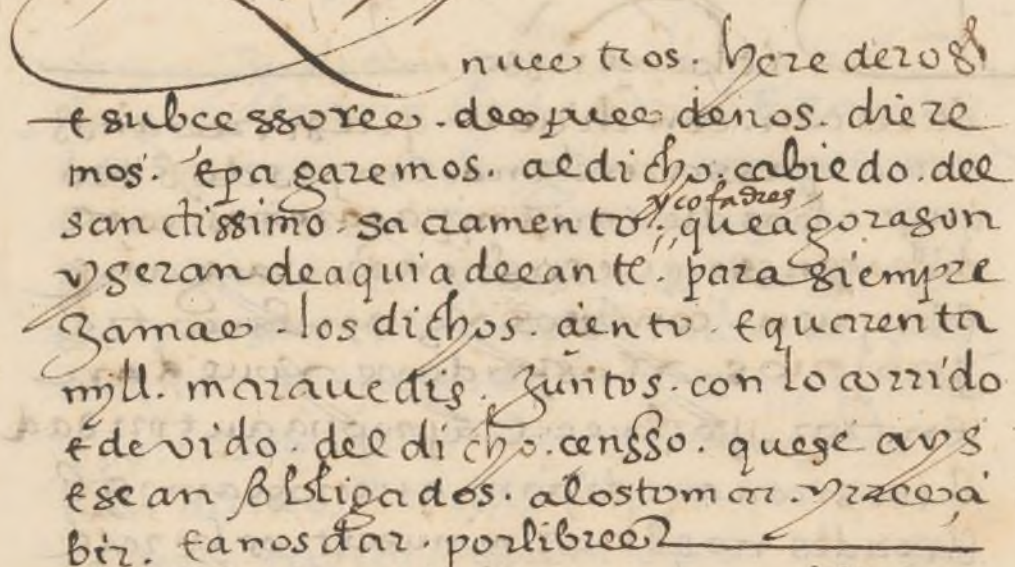 nuestros. herederos
e subcessores. despues de nos. diere
mos. e pagaremos. al dicho. cabildo. del
sanctissimo. sacramento. y cofadres que agora son
y seran de aqui adelante. para siempre
jamas. los dichos. ciento. e quarenta
mill. maravedis. juntos. con lo corrido
e devido. del dicho. censso. que se
e sean obligados. a los tomar. y rrecebir
bir. e a nos dar. por libres